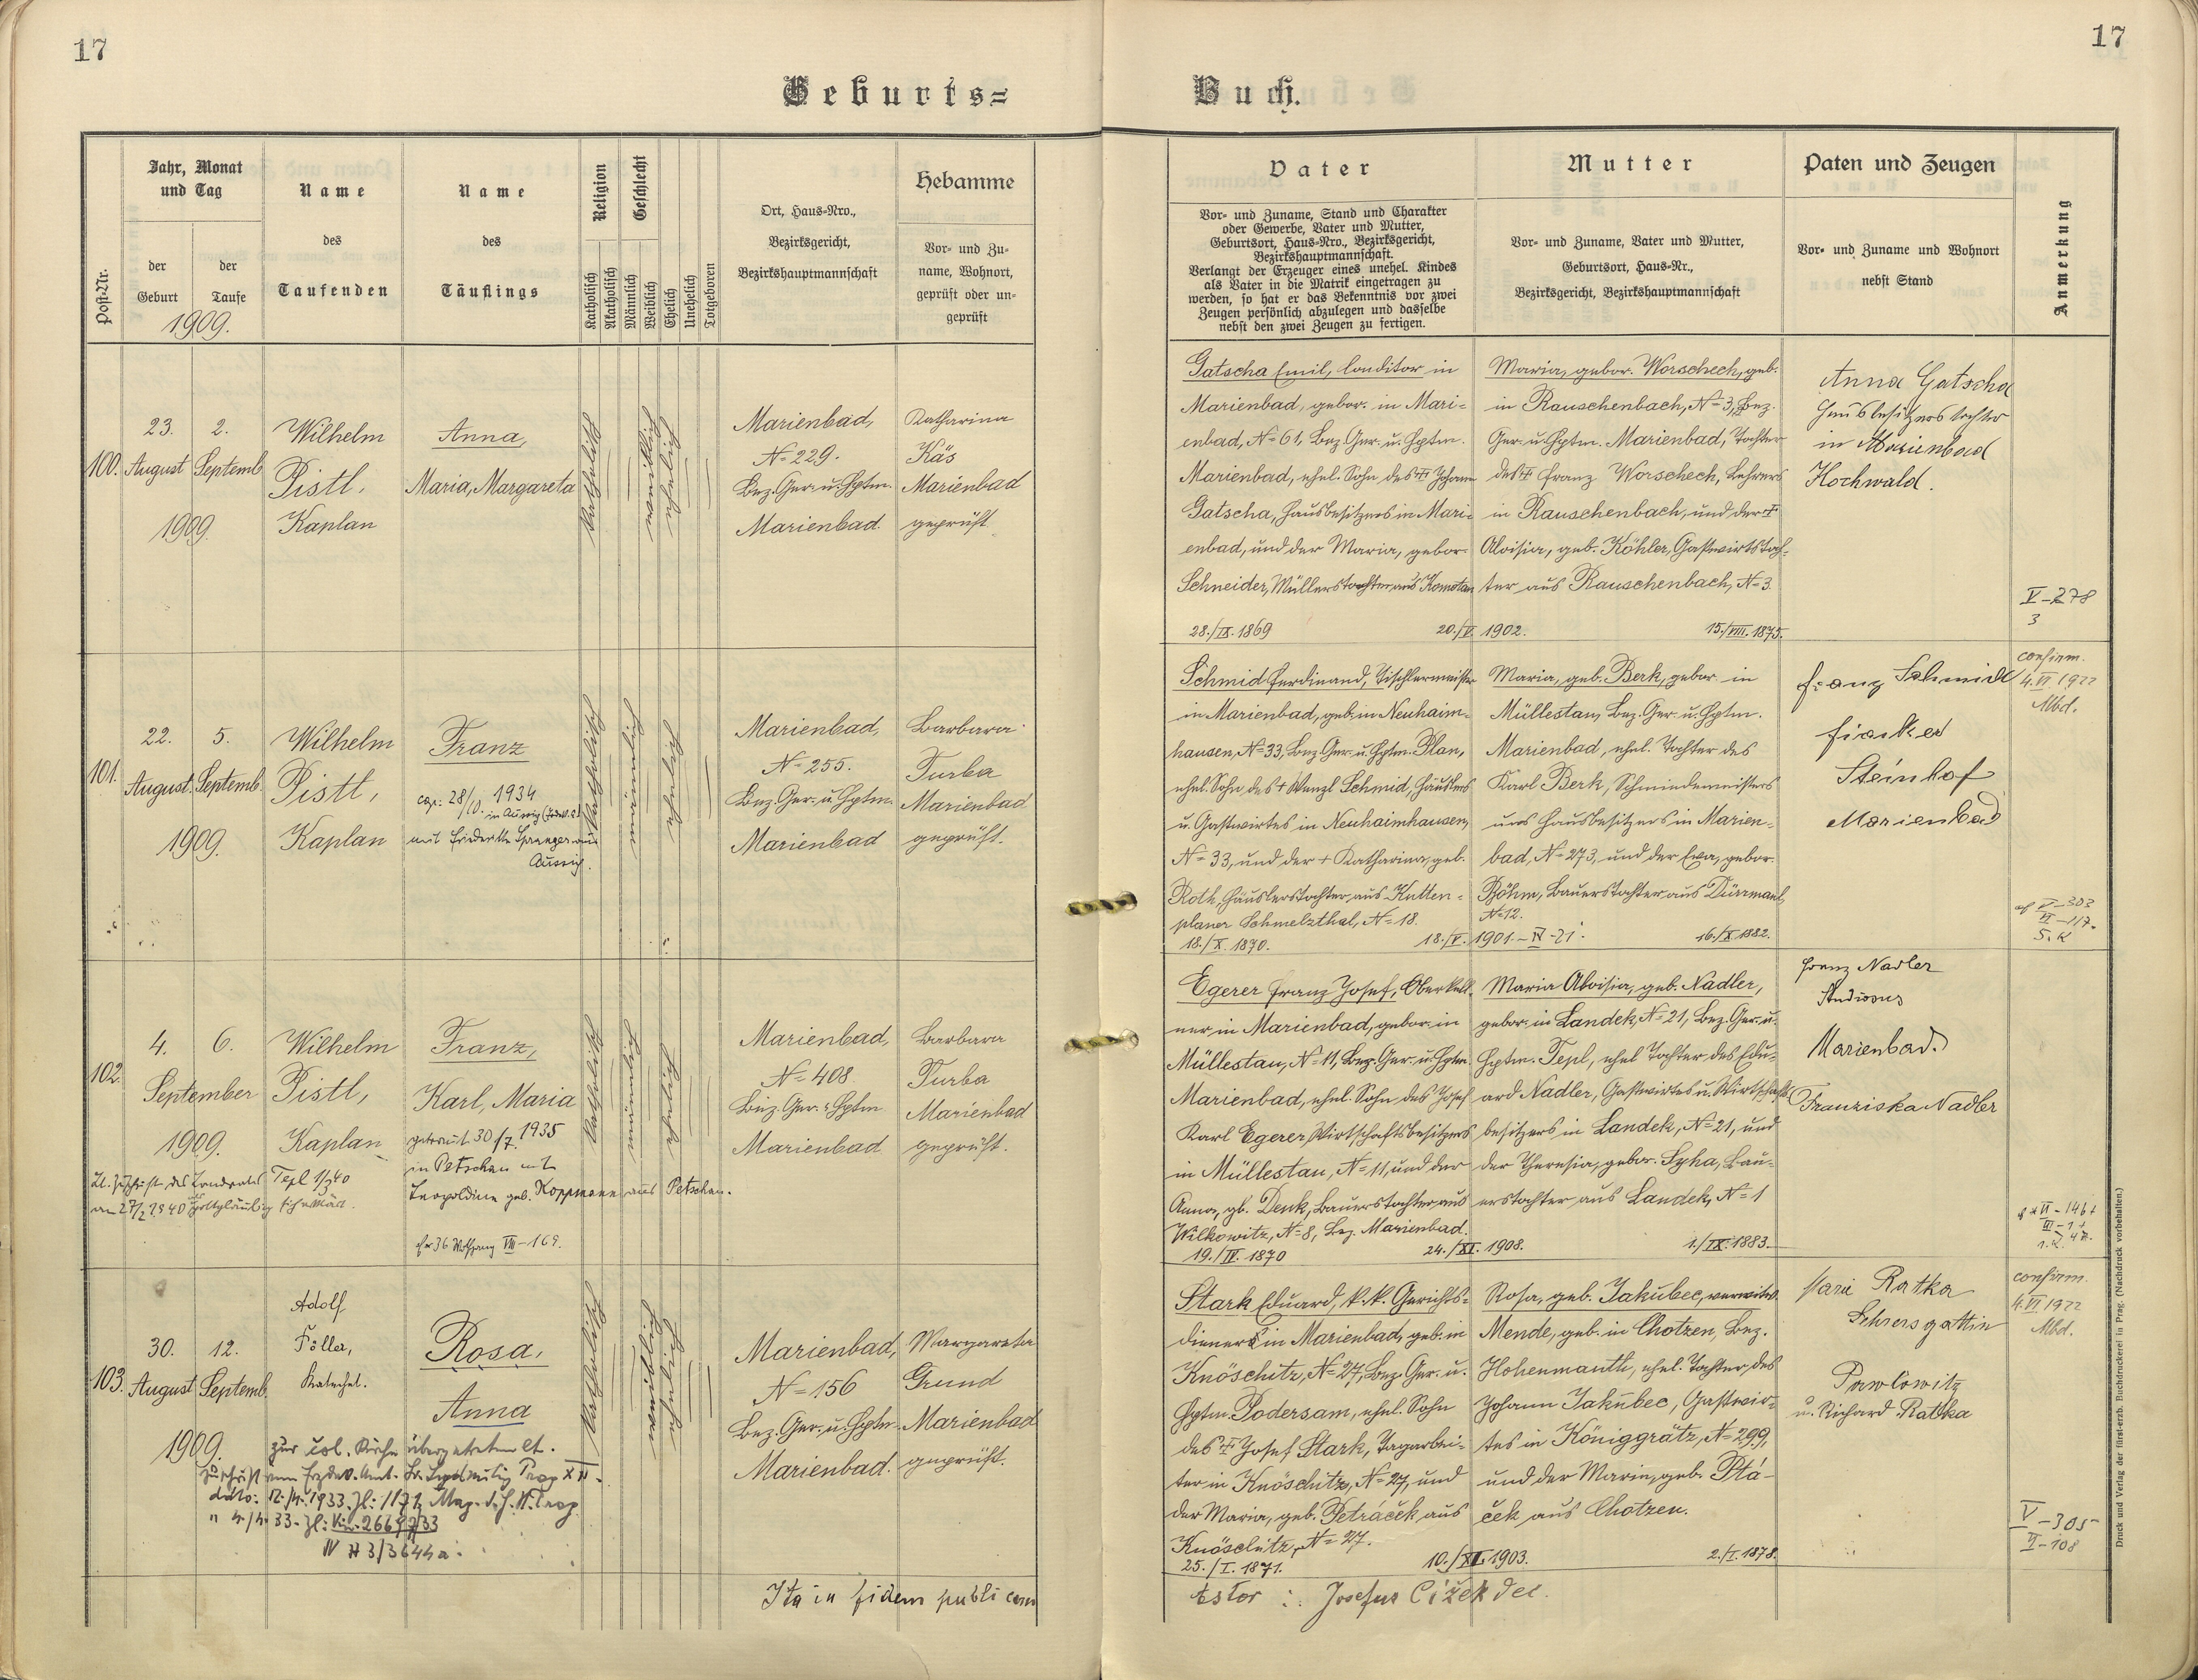 17
17
Geburts=
Buch.
Post-Nr.
Jahr, Monat
und Tag
der
Geburt
der
Taufe
1909.
Name
des
Taufenden
Name
des
Täuflings
Religion
Katholisch
Akatholisch
Geschlecht
Männlich
Weiblich
Ehelich
Unehelich
Totgeboren
Ort, Haus=Nro.,
Bezirksgericht,
Bezirkshauptmannschaft
Hebamme
Vor= und Zu=
name, Wohnort,
geprüft oder un=
geprüft
Vater
Vor= und Zuname, Stand und Charakter
oder Gewerbe, Vater und Mutter,
Geburtsort, Haus=Nro., Bezirksgericht,
Bezirkshauptmannschaft.
Verlangt der Erzeuger eines unehel. Kindes
als Vater in die Matrik eingetragen zu
werden, so hat er das Bekenntnis vor zwei
Zeugen persönlich abzulegen und dasselbe
nebst den zwei Zeugen zu fertigen.
Mutter
Vor= und Zuname, Vater und Mutter,
Geburtsort, Haus=Nr.,
Bezirksgericht, Bezirkshauptmannschaft
Paten und Zeugen
Vor= und Zuname und Wohnort
nebst Stand
Anmerkung
100.
23.
August
2.
Septemb.
1909.
Wilhelm
Pistl,
Kaplan
Anna,
Maria, Margareta
katholisch
weiblich
ehelich
Marienbad,
N= 229.
Bez. Ger. u. Hptm.
Marienbad.
Katharina
Käs
Marienbad
geprüft.
Gatscha Emil, Conditor in
Marienbad, gebor. in Mari=
enbad, N= 61, Bez. Ger. u. Hptm.
Marienbad, ehel. Sohn des † Johann
Gatscha, Hausbesitzers in Mari=
enbad, und der Maria, gebor.
Schneider, Müllerstochter aus Komotau
28./IX. 1869
20./V. 1902.
Maria, gebor. Worschech, geb.
in Rauschenbach, N= 3, Bez.
Ger. u. Hptm. Marienbad, Tochter
des † Franz Worschech, Lehrers
in Rauschenbach, und der †
Aloisia, geb. Köhler, Gastwirtstoch=
ter aus Rauschenbach, N= 3.
15./VIII. 1875.
Anna Gatscha
Hausbesitzerstochter
in Marienbad
Hochwald.
V-278
3
101.
22.
August
5.
Septemb.
1909.
Wilhelm
Pistl,
Kaplan
Franz
cop: 28/10. 1934
in Aussig
mit Friederike Sprenger aus
Aussig.
katholisch
männlich
ehelich
Marienbad,
N= 255.
Bez. Ger. u. Hptm.
Marienbad
Barbara
Turba
Marienbad
geprüft.
Schmid Ferdinand, Tischlermeister
in Marienbad, geb. in Neuhaim=
hausen, N= 33, Bez. Ger. u. Hptm. Plan,
ehel. Sohn des † Wenzl Schmid, Häuslers
u. Gastwirtes in Neuhaimhausen,
N= 33, und der † Katharina, geb.
Roth, Häuslerstochter aus Kutten=
planer Schmelzthal, N= 18.
18./X. 1870.
18./V. 1901.-IV-21.
Maria, geb. Berk, gebor. in
Müllestau, Bez. Ger. u. Hptm.
Marienbad, ehel. Tochter des
Karl Berk, Schmiedemeisters
und Hausbesitzers in Marien=
bad, N= 273, und der Eva, gebor.
Böhm, Bauerstochter aus Dürrmaul,
N= 12.
16./X. 1882.
Franz Schmidt
Fiaker
Steinhof
Marienbad
confirm.
4. VI 1922
Mbd.
V-303
VI-117.
102.
4.
6.
September
1909.
Wilhelm
Pistl,
Kaplan
Franz,
Karl, Maria
getraut 30/7. 1935
in Petschau mit
Leopoldine geb. Koppmann aus Petschau.
Lt. Zuschrift des Landrates Tepl
am 27/2 1940 gottgläubig erklärt.
VIII-169.
katholisch
männlich
ehelich
Marienbad,
N= 408
Bez. Ger. u. Hptm
Marienbad
Barbara
Turba
Marienbad
geprüft.
Egerer Franz Josef, Oberkell=
ner in Marienbad, gebor. in
Müllestau, N= 11, Bez. Ger. u. Hptm.
Marienbad, ehel. Sohn des Josef
Karl Egerer, Wirtschaftsbesitzers
in Müllestau, N= 11, und der
Anna, gb. Denk, Bauerstochter aus
Wilkowitz, N= 8, Bez. Marienbad.
19./IV. 1870
24./XI. 1908.
Maria Aloisia, geb. Nadler,
gebor. in Landek, N= 21, Bez. Ger. u.
Hptm. Tepl, ehel. Tochter des Edu=
ard Nadler, Gastwirtes u. Wirtschafts=
besitzers in Landek, N= 21, und
der Theresia, gebor. Syha, Bau=
erstochter aus Landek, N= 1
1./IX. 1883.
Franz Nadler
Studiosus
Marienbad.
Franziska Nadler
103.
30.
August
12.
Septemb.
1909.
Adolf
Föller,
Katechet.
Rosa,
Anna
katholisch
weiblich
ehelich
Marienbad,
N= 156
Bez. Ger. u. Hptm.
Marienbad.
Margareta
Grund
Marienbad
geprüft.
Stark Eduard, k. k. Gerichts=
diener in Marienbad, geb. in
Knöschitz, N= 27, Bez. Ger. u.
Hptm. Podersam, ehel. Sohn
des † Josef Stark, Tagarbei=
ter in Knöschitz, N= 27, und
der Maria, geb. Petráček aus
Knöschitz, N= 27.
25./I. 1871.
10./XI. 1903.
Rosa, geb. Jakubec, verwitw.
Mende, geb. in Chotzen, Bez.
Hohenmauth, ehel. Tochter des
Johann Jakubec, Gastwir=
tes in Königgrätz, N= 299,
und der Maria, geb. Ptá=
ček aus Chotzen.
2./I. 1878.
Marie Ratka
Lehrersgattin
Pawlowitz
u. Richard Ratka
confirm.
4. VI 1922
Mbd.
V-305
II-108
Ita in fidem publicam
testor : Josefus Čížek Dec.
Druck und Verlag der fürst-erzb. Buchdruckerei in Prag. (Nachdruck vorbehalten.)